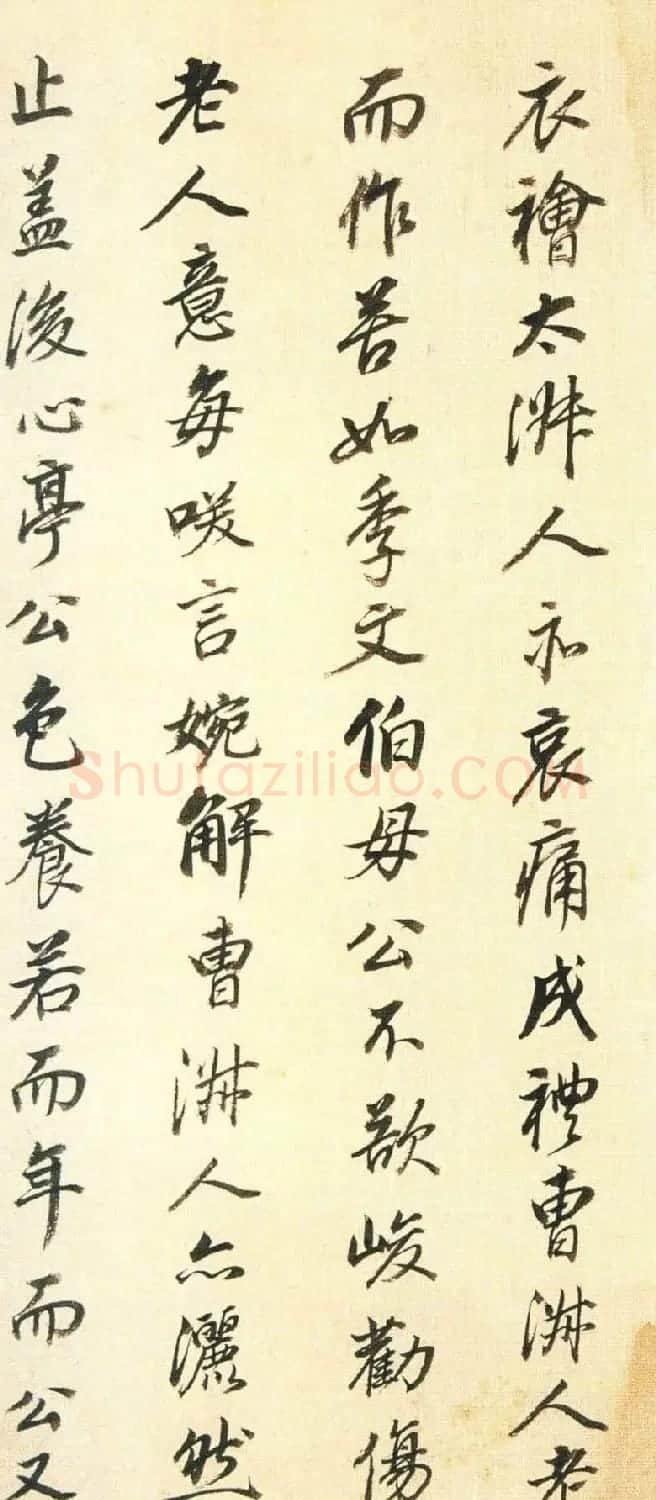 衣襘太淑人亦哀痛成禮曹淑人老
而作苦如季文伯母公不欲峻勸傷
老人意每咲言婉解曹淑人亦灑然
止盖後心亭公色養若而年而公又
Shufaziliao.COM